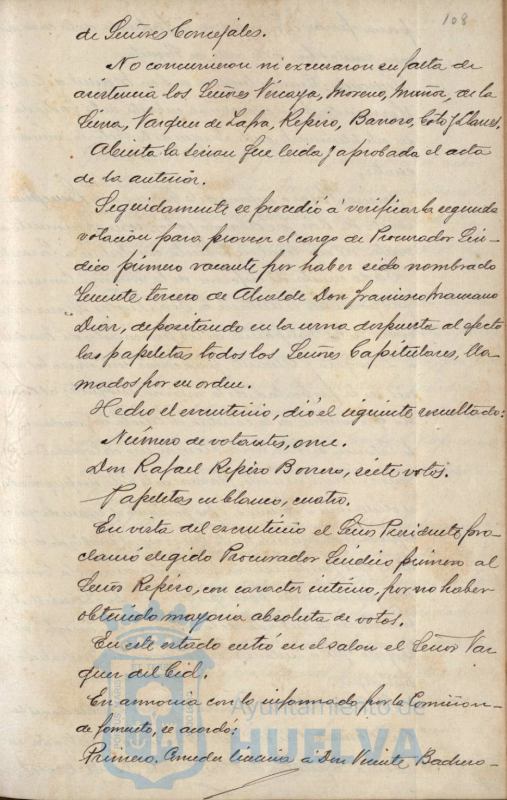 108
de Señores Concejales.
No concurrieron ni excusaron su falta de
asistencia los Señores Vizcaya, Moreno, Muñiz, de la
Cinta, Vazquez de Zafra, Repiso, Borrero, Coto y Llanes.
Abierta la sesion fue leida y aprobada el acta
de la anterior.
Seguidamente se procedió á verificar la segunda
votacion para proveer el cargo de Procurador Sin-
dico primero vacante por haber sido nombrado
Teniente tercero de Alcalde Don Francisco Manzano
Diaz, depositando en la urna dispuesta al efecto
las papeletas todos los Señores Capitulares, lla-
mados por su orden.
Hecho el escrutinio, dió el siguiente resultado:
Número de votantes, once.
Don Rafael Repiso Borrero, siete votos.
Papeletas en blanco, cuatro.
En vista del escrutinio el Señor Presidente pro-
clamó elegido Procurador Sindico primero al
Señor Repiso, con caracter interino, por no haber
obtenido mayoria absoluta de votos.
En este estado entró en el salon el Señor Vaz
quez del Cid.
En armonia con lo informado por la Comision
de fomento, se acordó:
Primero. Conceder licencia á Don Vicente Bachero
Ayuntamiento de
HUELVA